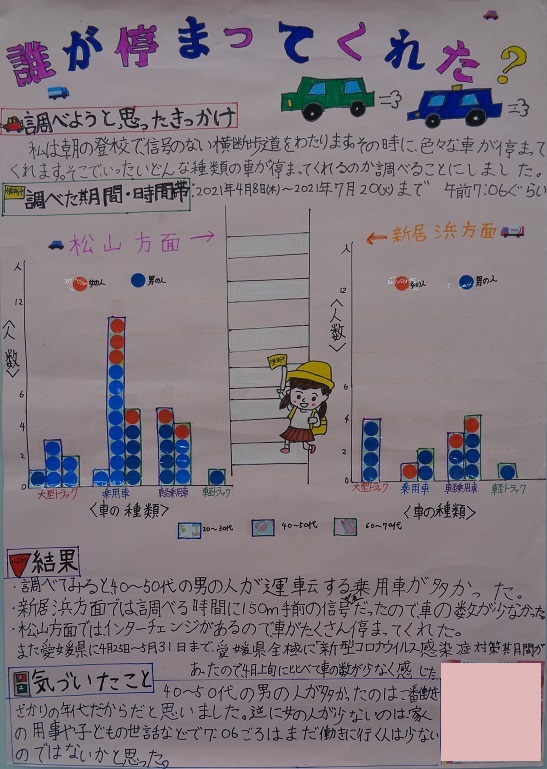 誰が停まってくれた?
調べようと思ったきっかけ
私は朝の登校で信号のない横断歩道をわたります。その時に、色々な車が停まって
くれます。そこでいったいどんな種類の車が停まってくれるのか調べることにしました。
調べた期間・時間帯:2021年4月8日(木)~2021年7月20(火)まで 午前7:06ぐらい
松山方面→
←新居浜方面
人
女の人 男の人
12
6
4
2
0
<人数>
大型トラック 乗用車 軽乗用車 軽トラック
<車の種類>
人
女の人 男の人
12
6
4
2
0
<人数>
大型トラック 乗用車 軽乗用車 軽トラック
<車の種類>
20~30代 40~50代 60~70代
結果
・調べてみると40~50代の男の人が運転する乗用車が多かった。
・新居浜方面では調べる時間に150m手前の信号が赤だったので車の数が少なかった。
・松山方面ではインターチェンジがあるので車がたくさん停まってくれた。
また愛媛県に4月25日~5月31日まで、愛媛県全域に「新型コロナウイルス感染症対策期間が
あったので4月上旬にくらべて車の数が少なく感じた。
気づいたこと
40~50代の男の人が多かったのは一番働き
ざかりの年代だからだと思いました。逆に女の人が少ないのは家
の用事や子どもの世話などで7:06ごろはまだ働きに行く人は少ない
のではないかと思った。